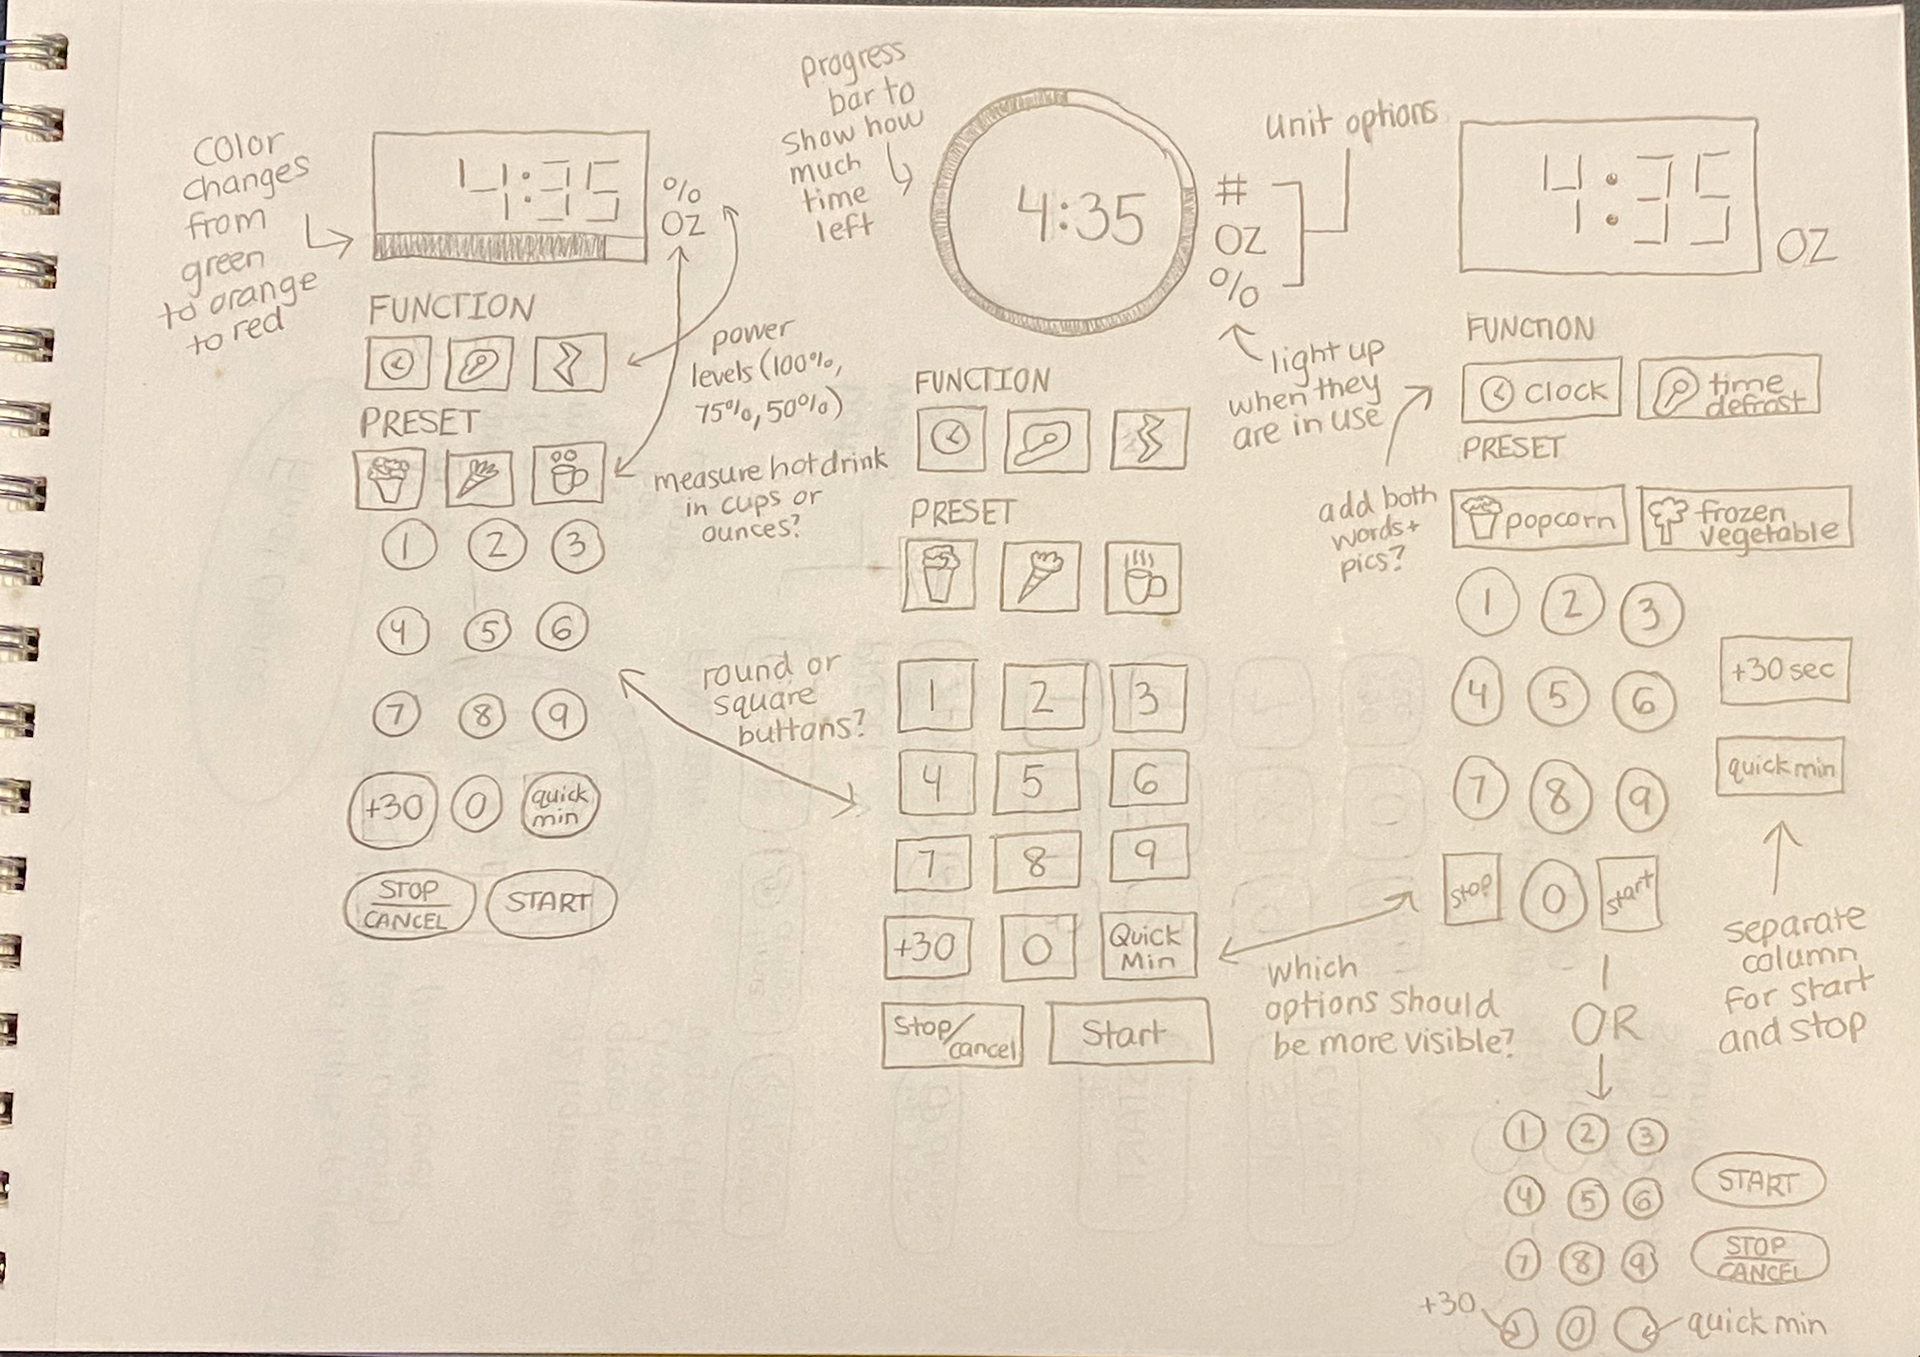 color
changes
from
green
to orange
to red
4:35
%
OZ
FUNCTION
PRESET
power
levels (100%,
75%, 50%)
measure hot drink
in cups or
ounces?
1 2 3
4 5 6
7 8 9
+30 0 quick
min
STOP
CANCEL
START
round or
square
buttons?
progress
bar to
show how
much
time
left
4:35
#
OZ
%
unit options
light up
when they
are in use
FUNCTION
PRESET
1 2 3
4 5 6
7 8 9
+30 0 Quick
Min
Stop/
cancel
Start
which
options should
be more visible?
4:35
OZ
FUNCTION
clock
time
defrost
PRESET
add both
words +
pics?
popcorn
frozen
vegetable
1 2 3
4 5 6
7 8 9
stop 0 start
+30 sec
quick min
separate
column
for start
and stop
OR
1 2 3
4 5 6
7 8 9
+30 0 quick min
START
STOP
CANCEL